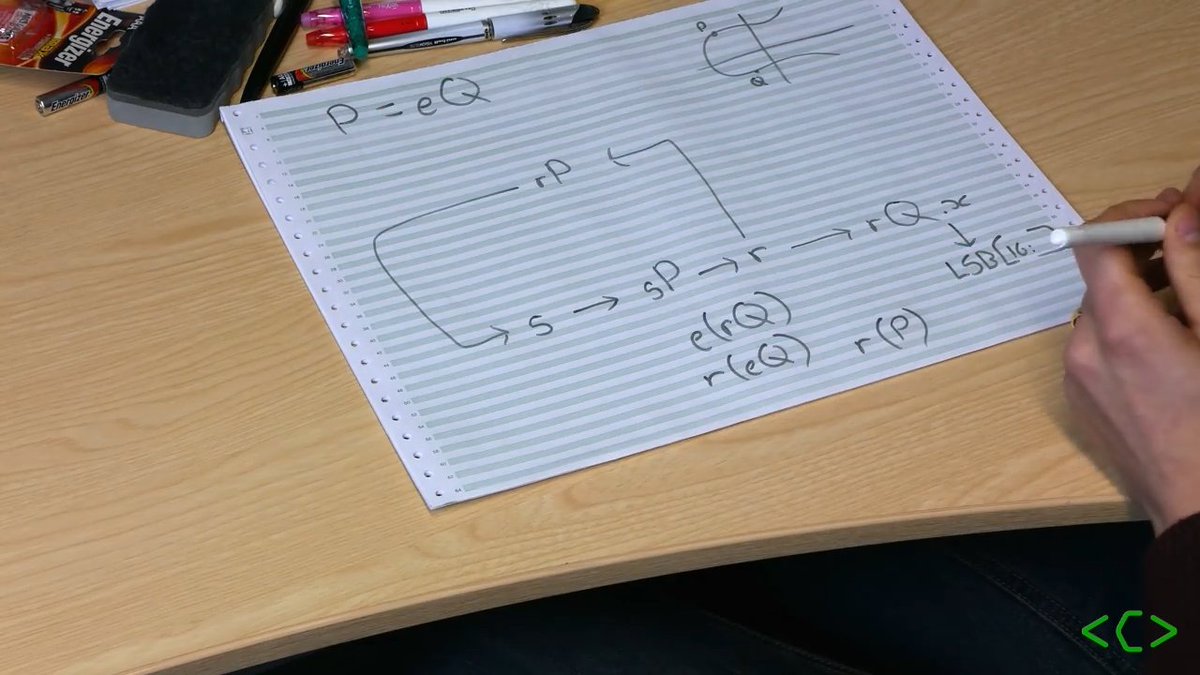 Energizer
Energizer
P
Q
P = eQ
rP
s → sP → r → rQ.x
LSB[16:]
e(rQ)
r(eQ) r(P)
<C>